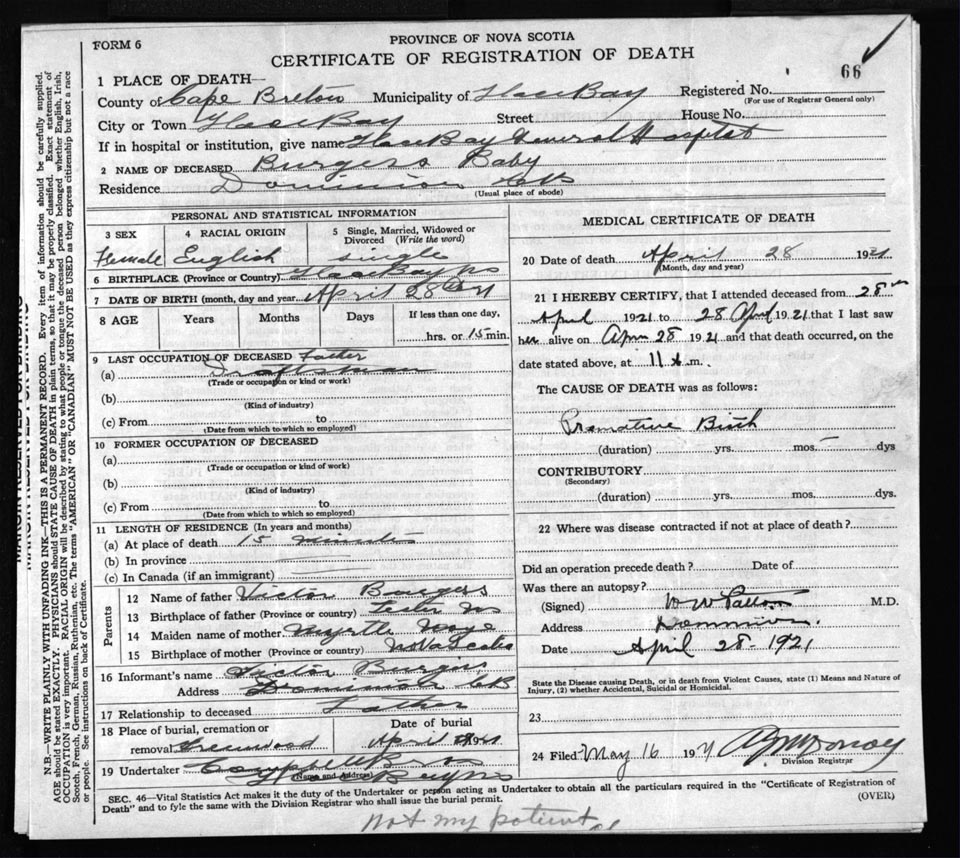 FORM 6
PROVINCE OF NOVA SCOTIA
CERTIFICATE OF REGISTRATION OF DEATH
66
1 PLACE OF DEATH—
County of Cape Breton Municipality of Glace Bay Registered No.
(For use of Registrar General only)
City or Town Glace Bay Street House No.
If in hospital or institution, give name Glace Bay General Hospital
2 NAME OF DECEASED Burgess Baby
Residence Dominion CB
(Usual place of abode)
PERSONAL AND STATISTICAL INFORMATION
3 SEX 4 RACIAL ORIGIN 5 Single, Married, Widowed or Divorced (Write the word)
Female English single
6 BIRTHPLACE (Province or Country) Glace Bay NS
7 DATE OF BIRTH (month, day and year) April 28
8 AGE Years Months Days If less than one day,
hrs. or 15 min.
9 LAST OCCUPATION OF DECEASED Father
(a) Draftsman
(Trade or occupation or kind or work)
(b)
(Kind of industry)
(c) From to
(Date from which to which so employed)
10 FORMER OCCUPATION OF DECEASED
(a)
(Trade or occupation or kind of work)
(b)
(Kind of industry)
(c) From to
(Date from which to which so employed)
11 LENGTH OF RESIDENCE (In years and months)
(a) At place of death 15 minutes
(b) In province
(c) In Canada (if an immigrant)
Parents
12 Name of father Victor Burgess
13 Birthplace of father (Province or country)
14 Maiden name of mother Myrtle
15 Birthplace of mother (Province or country) Nova Scotia
16 Informant's name Victor Burgess
Address Dominion CB
17 Relationship to deceased Father
18 Place of burial, cremation or Date of burial
removal Greenwood April
19 Undertaker
(Name and Address)
Glace Bay NS
MEDICAL CERTIFICATE OF DEATH
20 Date of death April 28 1921
(Month, day and year)
21 I HEREBY CERTIFY, that I attended deceased from 28th
April 1921 to 28 April 1921 that I last saw
her alive on Apr 28 1921 and that death occurred, on the
date stated above, at 11 m.
The CAUSE OF DEATH was as follows:
Premature Birth
(duration) yrs. mos. dys
CONTRIBUTORY
(Secondary)
(duration) yrs. mos. dys.
22 Where was disease contracted if not at place of death?
Did an operation precede death? Date of
Was there an autopsy?
(Signed) W W Patton M.D.
Address Dominion.
Date April 28 - 1921
State the Disease causing Death, or in death from Violent Causes, state (1) Means and Nature of
Injury, (2) whether Accidental, Suicidal or Homicidal.
23
24 Filed May 16 1921
Division Registrar
SEC. 46—Vital Statistics Act makes it the duty of the Undertaker or person acting as Undertaker to obtain all the particulars required in the "Certificate of Registration of
Death" and to fyle the same with the Division Registrar who shall issue the burial permit.
(OVER)
Not my patient
N.B.—WRITE PLAINLY WITH UNFADING INK—THIS IS A PERMANENT RECORD. Every item of information should be carefully supplied.
AGE should be stated EXACTLY. PHYSICIANS should STATE CAUSE OF DEATH in plain terms, so that it may be properly classified. Exact statement of
OCCUPATION is very important. RACIAL ORIGIN will be described by stating to what people or tongue the deceased person belonged, whether English, Irish,
Scotch, French, German, Russian, Ruthenian, etc. The terms "AMERICAN" OR "CANADIAN" MUST NOT BE USED as they express citizenship but not a race
or people. See instructions on back of Certificate.